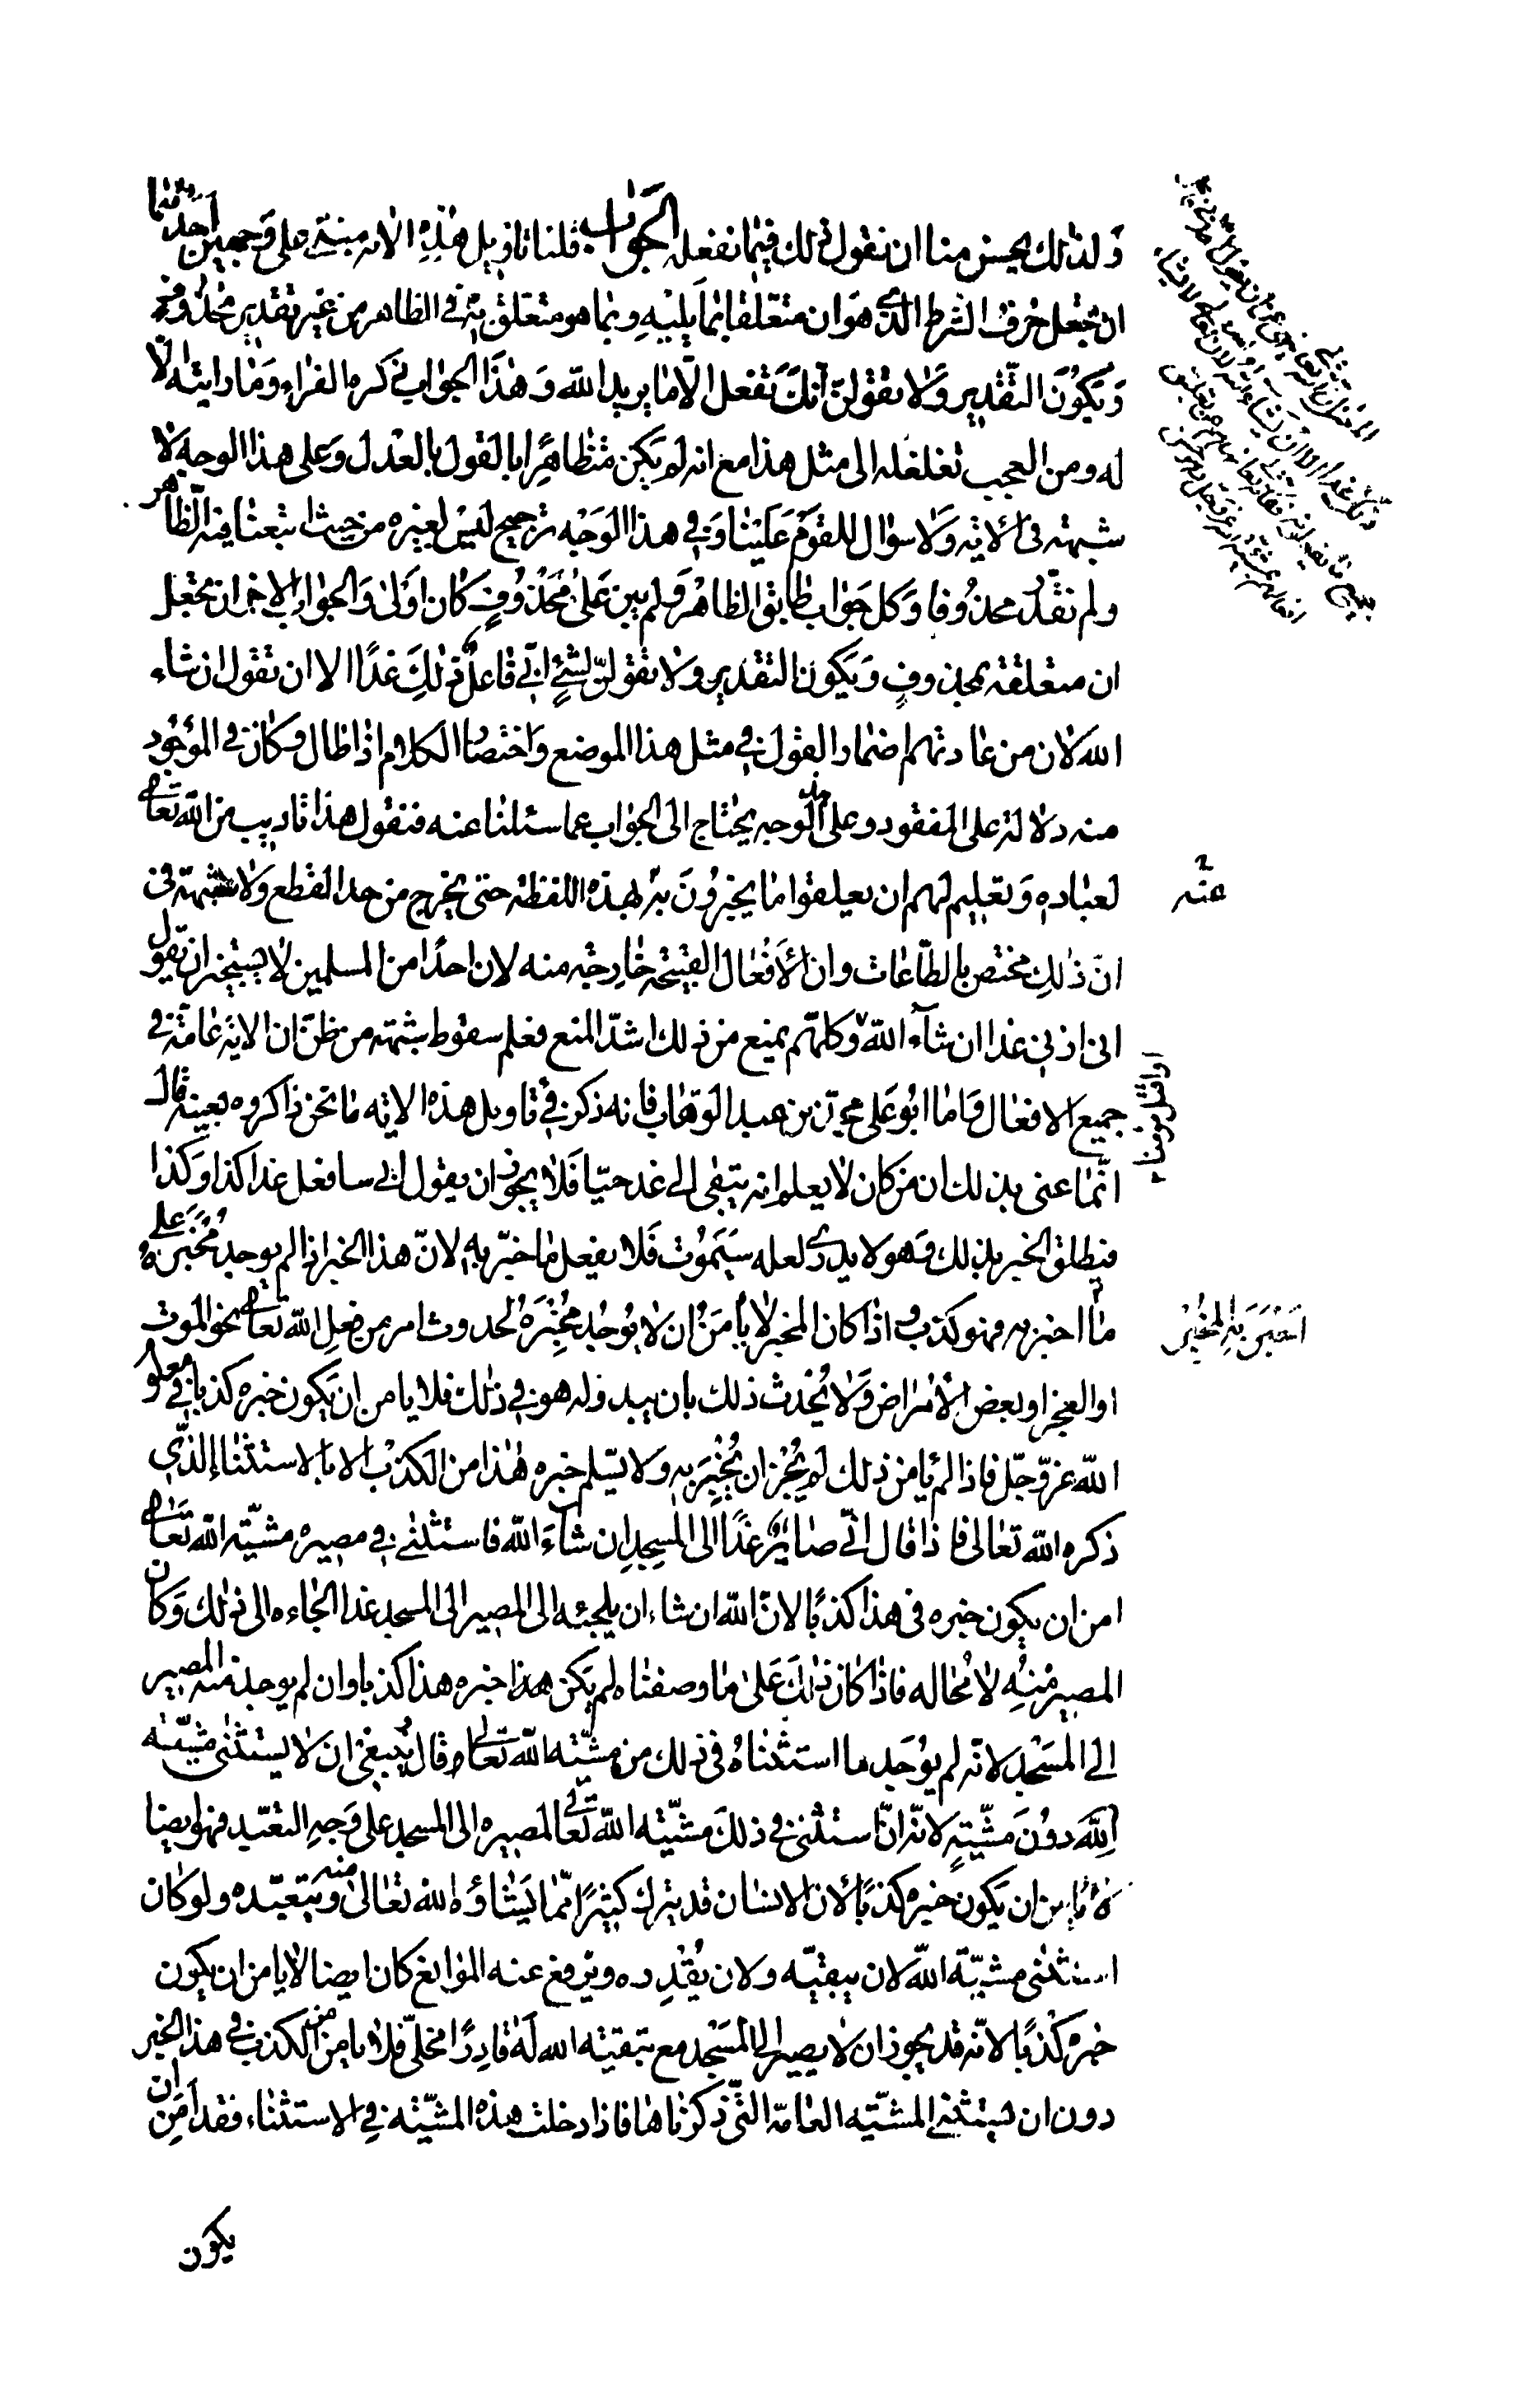 ولذلك يحسن منا ان نقول ذلك فيما نفعله الجواب قلنا تاويل هذه الايه مبنى على وجهين احدهما
ان تجعل حرف الشرط الذى هو ان متعلقا بما يليه وبما هو متعلق به فى الظاهر من غير تقدير محذوف
ويكون التقدير ولا تقولن انك تفعل الا ما يريد الله وهذا الجواب ذكره الفراء وما رايته الا
له ومن العجب تغلغله الى مثل هذا مع انه لم يكن متظاهرا بالقول بالعدل وعلى هذا الوجه لا
شبهة فى الاية ولا سؤال للقوم علينا وفى هذا الوجه ترجيح ليس لغيره من حيث اتبعنا فيه الظاهر
ولم نقدر محذوفا وكل جواب طابق الظاهر ولم يبن على محذوف كان اولى والجواب الاخر ان نجعل
ان متعلقة بمحذوف ويكون التقدير ولا تقولن لشئ انى فاعل ذلك غدا الا ان تقول ان شاء
الله لان من عادتهم اضمار القول فى مثل هذا الموضع واختصار الكلام اذا طال وكان فى الموجود
منه دلالة على المفقود وعلى هذا الوجه يحتاج الى الجواب عما سئلنا عنه فنقول هذا تاديب من الله تعالى
لعباده وتعليم لهم ان يعلقوا ما يخبرون به بهذه اللفظة حتى يخرج من حد القطع ولا شبهة فى
ان ذلك مختص بالطاعات وان الافعال القبيحة خارجة منه لان احدا من المسلمين لا يستجيز ان يقول
انى ازنى غدا ان شاء الله وكلهم يمنع من ذلك اشد المنع فعلم سقوط شبهة من ظن ان الاية عامة فى
جميع الافعال واما ابو على محمد بن عبد الوهاب فانه ذكر فى تاويل هذه الايه ما نحن ذاكروه بعينه قال
انما عنى بذلك ان من كان لا يعلم انه يبقى الى غد حيا فلا يجوز ان يقول انى سافعل غدا كذا وكذا
فيطلق الخبر بذلك وهو لا يدرى لعله سيموت فلا يفعل ما خبر به لان هذا الخبر اذا لم يوجد مخبره على
ما اخبر به فهو كذب و اذا كان المخبر لا يأمن ان لا يوجد مخبره لحدوث امر من فعل الله تعالى نحو الموت
او العجز او بعض الامراض ولا يحدث ذلك بان يبدو له هو فى ذلك فلا يامن ان يكون خبره كذبا فى معلوم
الله عز وجل فاذا لم يامن ذلك لم يجز ان يخبر به ولا يسلم خبره هذا من الكذب الا بالاستثناء الذى
ذكره الله تعالى فاذا قال انى صاير غدا الى المسجد ان شاء الله فاستثنى فى مصيره مشية الله تعالى
امن ان يكون خبره فى هذا كذبا لان الله ان شاء ان يلجئه الى المصير الى المسجد غدا الجاءه الى ذلك وكان
المصير منه لا محاله فاذا كان ذلك على ما وصفناه لم يكن هذا خبره هذا كذبا وان لم يوجد منه المصير
الى المسجد لانه لم يوجد ما استثناه فى ذلك من مشية الله تعالى قال ينبغى ان لا يستثنى مشية
الله دون مشية لانه ان استثنى فى ذلك مشية الله تعالى لمصيره الى المسجد على وجه التعبد فهو ايضا
لا يامن ان يكون خبره كذبا لان الانسان قد يترك كثيرا مما يشاؤه الله تعالى منه ويتعبده ولو كان
استثنى مشية الله لان يبقيه ولان يقدره ويرفع عنه الموانع كان ايضا لا يامن ان يكون
خبره كذبا لانه قد يجوز ان لا يصير الى المسجد مع تبقية الله له قادرا مخلى فلا يامن من الكذب فى هذا الخبر
دون ان يستثنى المشية العامة التى ذكرناها فاذا دخلت هذه المشية فى الاستثناء فقد امن ان
يكون
عنه